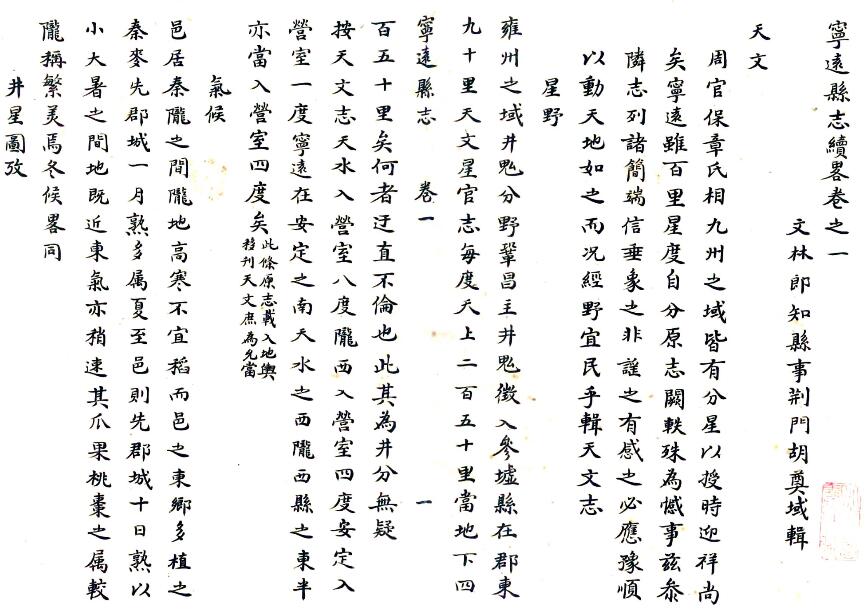 寧遠縣志續畧卷之一
文林郎知縣事荆門胡奠域輯
天文
周官保章氏相九州之域皆有分星以授時迎祥尚
矣寧遠雖百里星度自分原志闕軼殊為憾事兹叅
隣志列諸簡端信垂象之非謹之有感之必應豫順
以動天地如之而况經野宜民乎輯天文志
星野
雍州之域井鬼分野鞏昌主井鬼徵入參墟縣在郡東
九十里天文星官志每度天上二百五十里當地下四
寧遠縣志 卷一 一
百五十里矣何者迂直不倫也此其為井分無疑
按天文志天水入營室八度隴西入營室四度安定入
營室一度寧遠在安定之南天水之西隴西縣之東半
亦當入營室四度矣此條原志載入地輿移刊天文庶為允當
氣候
邑居秦隴之間隴地高寒不宜稻而邑之東鄉多植之
秦麥先郡城一月熟多属夏至邑則先郡城十日熟以
小大暑之間地既近東氣亦稍速其瓜果桃棗之属較
隴稱繁美焉冬候畧同
井星圖攷